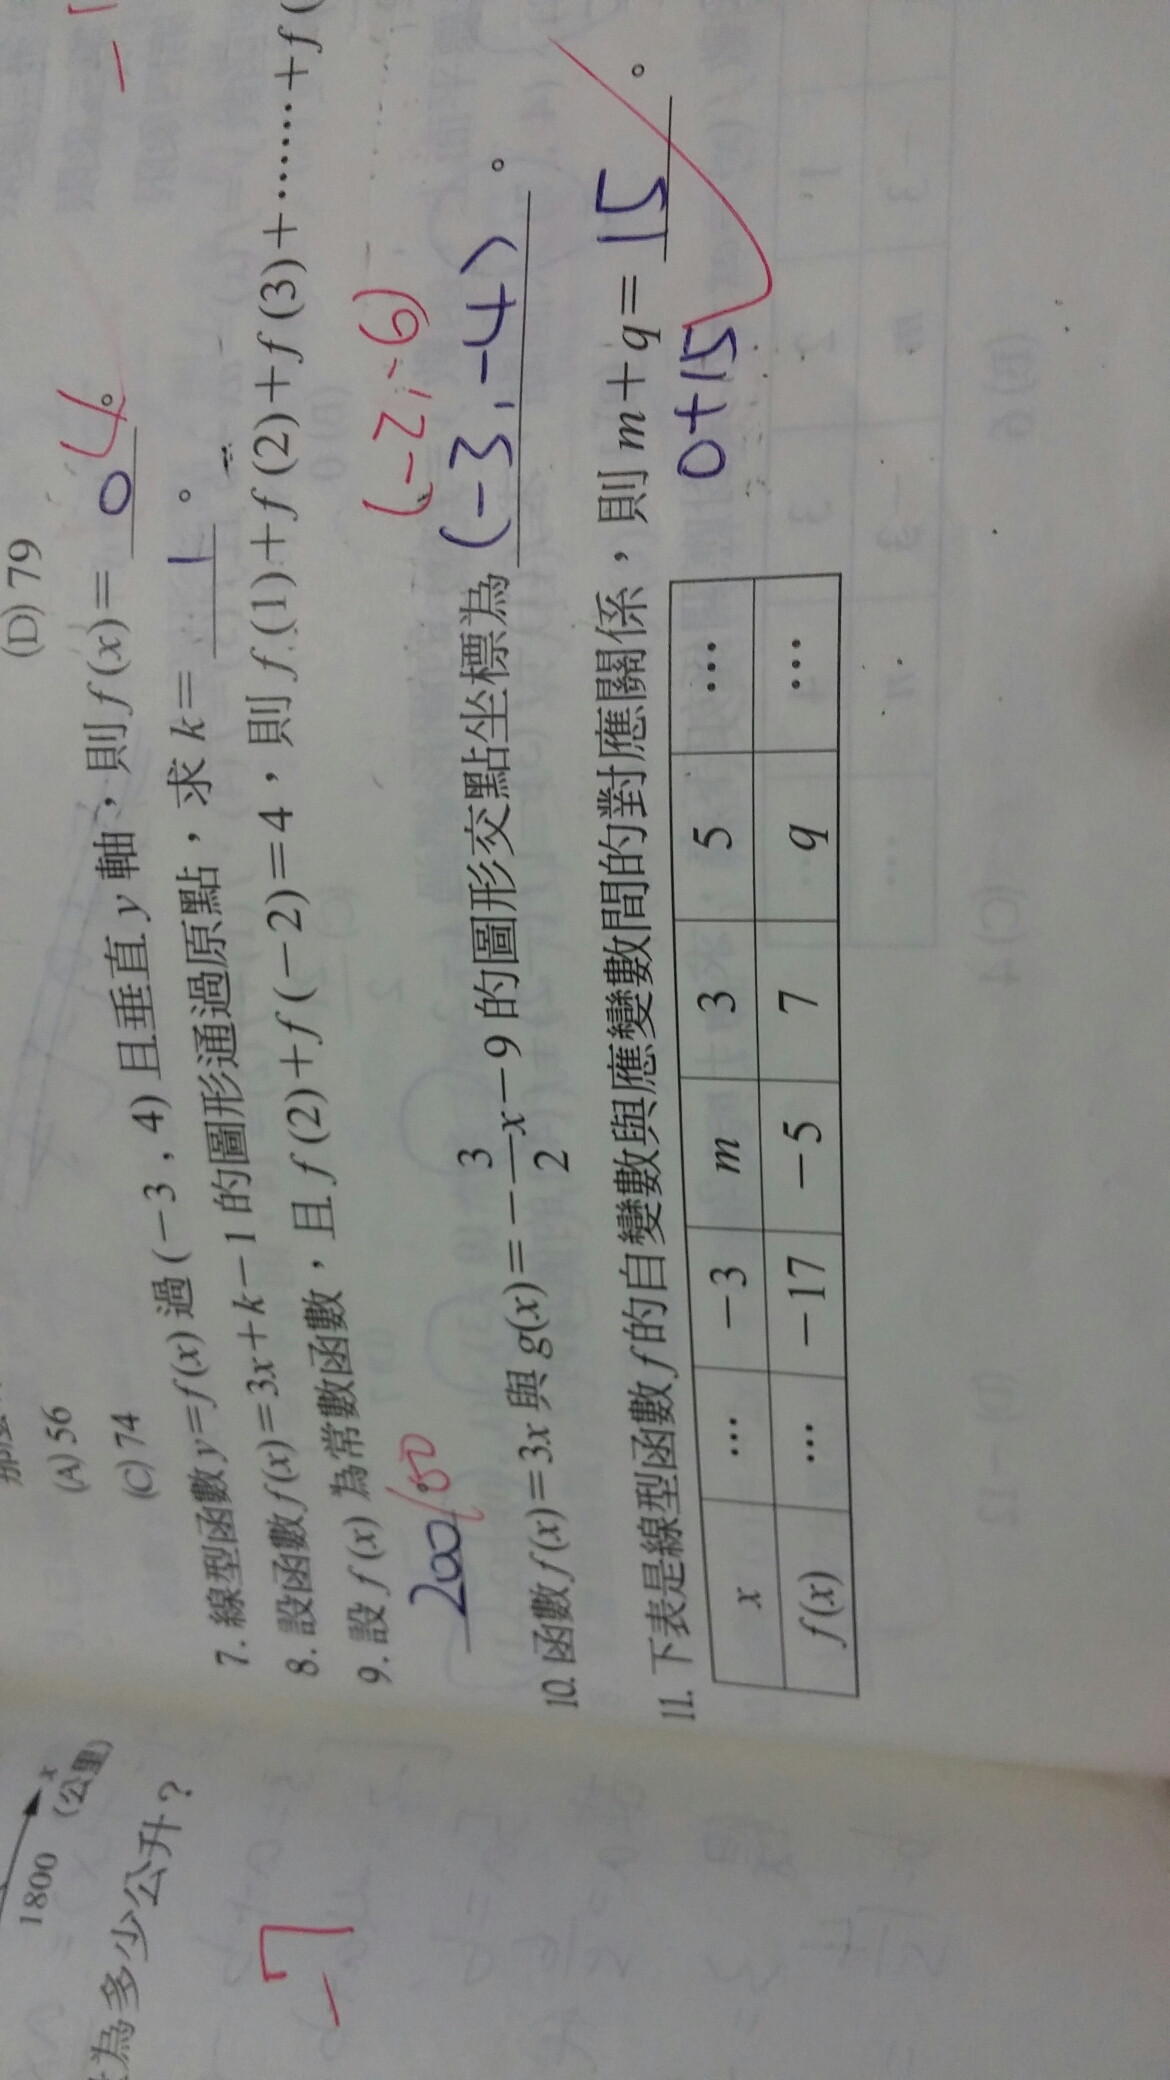 1800
x
(公里)
為多少公升？
-7
(A) 56
(D) 79
(C) 74
7. 線型函數 y=f(x) 過 (-3 , 4) 且垂直 y 軸，則 f(x)= 0 4。
8. 設函數 f(x)=3x+k-1 的圖形通過原點，求 k= 1 。
9. 設 f(x) 為常數函數，且 f(2)+f(-2)=4，則 f(1)+f(2)+f(3)+……+f(
200
(-2,-6)
10. 函數 f(x)=3x 與 g(x)=-3/2x-9 的圖形交點坐標為 (-3,-4) 。
11. 下表是線型函數 f 的自變數與應變數間的對應關係，則 m+q= 15 。
0+15
x … -3 m 3 5 …
f(x) … -17 -5 7 q …